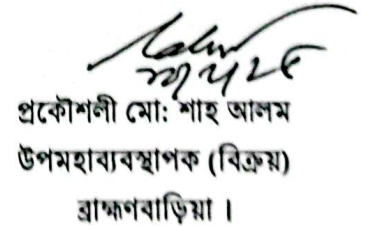 প্রকৌশলী মো: শাহ আলম
উপমহাব্যবস্থাপক (বিক্রয়)
ব্রাহ্মণবাড়িয়া ।